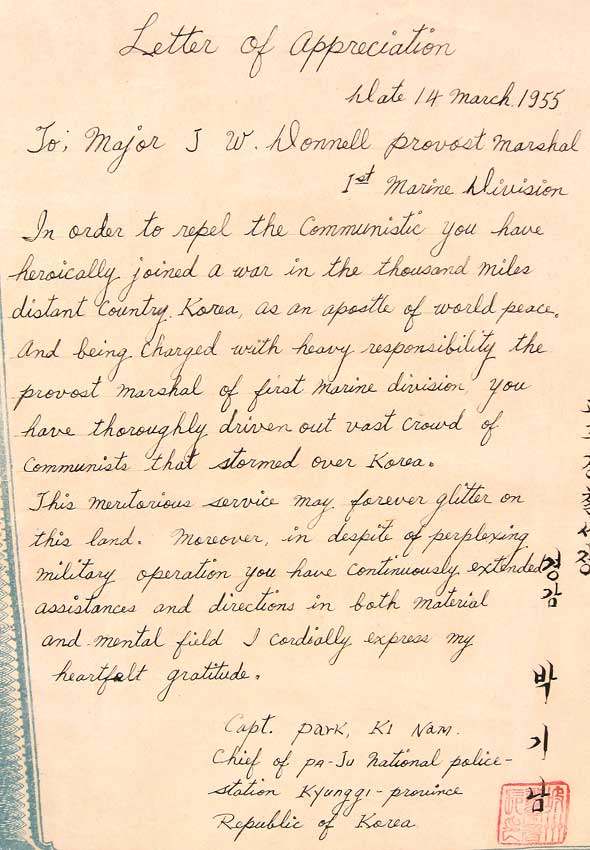 Letter of Appreciation
Date 14 March. 1955
To; Major J W. Donnell provost marshal
1st Marine Division
In order to repel the Communistic you have
heroically joined a war in the thousand miles
distant Country. Korea, as an apostle of world peace.
And being charged with heavy responsibility the
provost marshal of first Marine division, you
have thoroughly driven out vast crowd of
Communists that stormed over Korea.
This meritorious service may forever glitter on
this land. Moreover, in despite of perplexing
military operation you have continuously extended
assistances and directions in both material
and mental field I cordially express my
heartfelt gratitude.
Capt. Park, Ki Nam.
Chief of Pa-Ju national police-
station Kyunggi-province
Republic of Korea
경감 박기남